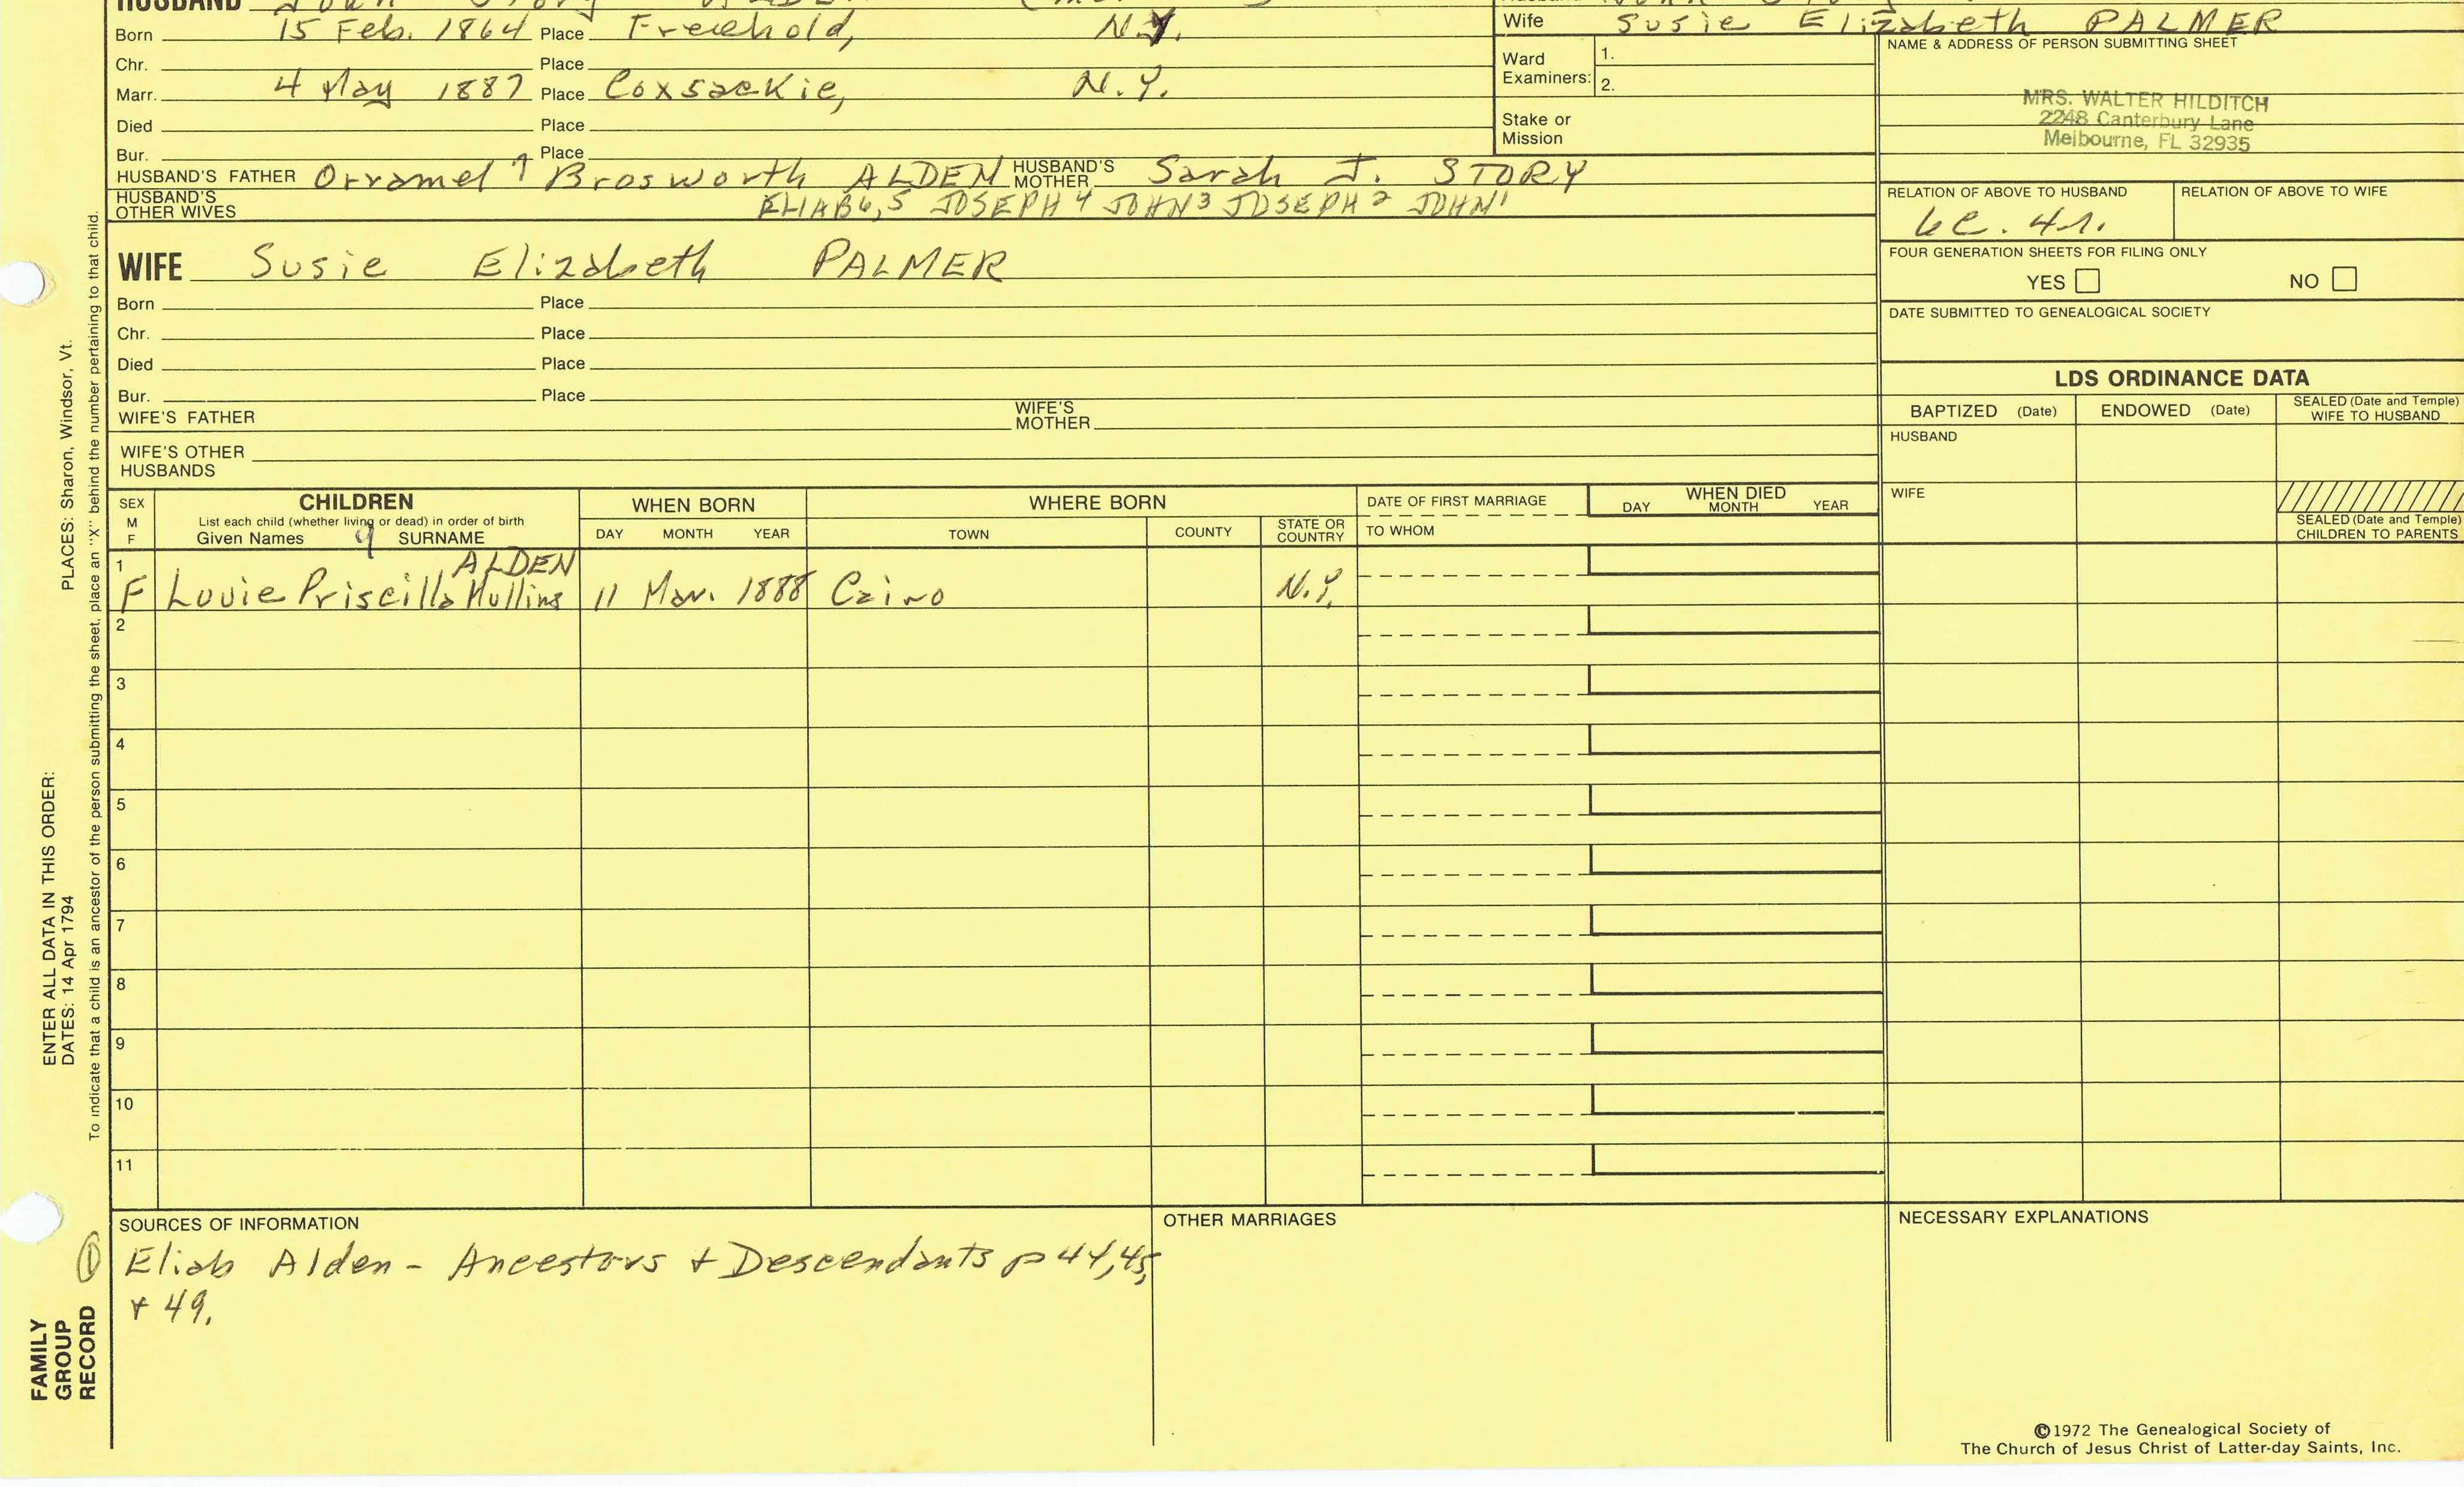 HUSBAND John Story
Born 15 Feb. 1864 Place Freehold, N.Y.
Chr. Place
Marr. 4 May 1887 Place Coxsackie, N.Y.
Died Place
Bur. Place
HUSBAND'S FATHER Orramel 7 Brosworth ALDEN HUSBAND'S MOTHER Sarah J. STORY
HUSBAND'S OTHER WIVES
ELIAB6,5 JOSEPH4 JOHN3 JOSEPH2 JOHN1
Wife Susie Elizabeth PALMER
Ward Examiners: 1.
2.
Stake or Mission
NAME & ADDRESS OF PERSON SUBMITTING SHEET
MRS. WALTER HILDITCH
2248 Canterbury Lane
Melbourne, FL 32935
RELATION OF ABOVE TO HUSBAND
6c. 4r.
RELATION OF ABOVE TO WIFE
FOUR GENERATION SHEETS FOR FILING ONLY
YES NO
DATE SUBMITTED TO GENEALOGICAL SOCIETY
WIFE Susie Elizabeth PALMER
Born Place
Chr. Place
Died Place
Bur. Place
WIFE'S FATHER WIFE'S MOTHER
WIFE'S OTHER HUSBANDS
LDS ORDINANCE DATA
BAPTIZED (Date) ENDOWED (Date) SEALED (Date and Temple) WIFE TO HUSBAND
HUSBAND
WIFE
SEALED (Date and Temple) CHILDREN TO PARENTS
SEX M F
CHILDREN
List each child (whether living or dead) in order of birth
Given Names 9 SURNAME
WHEN BORN
DAY MONTH YEAR
WHERE BORN
TOWN COUNTY STATE OR COUNTRY
DATE OF FIRST MARRIAGE
TO WHOM
WHEN DIED
DAY MONTH YEAR
1 ALDEN
F Louie Priscilla Mullins 11 Mar. 1888 Cairo N.Y.
2
3
4
5
6
7
8
9
10
11
SOURCES OF INFORMATION
① Eliab Alden - Ancestors + Descendants p 44,45,
+ 49.
OTHER MARRIAGES
NECESSARY EXPLANATIONS
©1972 The Genealogical Society of
The Church of Jesus Christ of Latter-day Saints, Inc.
FAMILY
GROUP
RECORD
ENTER ALL DATA IN THIS ORDER:
DATES: 14 Apr 1794 PLACES: Sharon, Windsor, Vt.
To indicate that a child is an ancestor of the person submitting the sheet, place an "X" behind the number pertaining to that child.